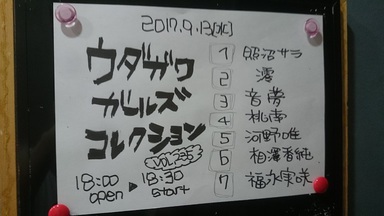 2017.9.13(水)
ウダガワ
ガールズ
コレクション
VOL.235
18:00 ▶ 18:30
open start
1 照沼サラ
2 澪
3 音夢
4 桃南
5 河野唯
6 相澤香純
7 福永実咲